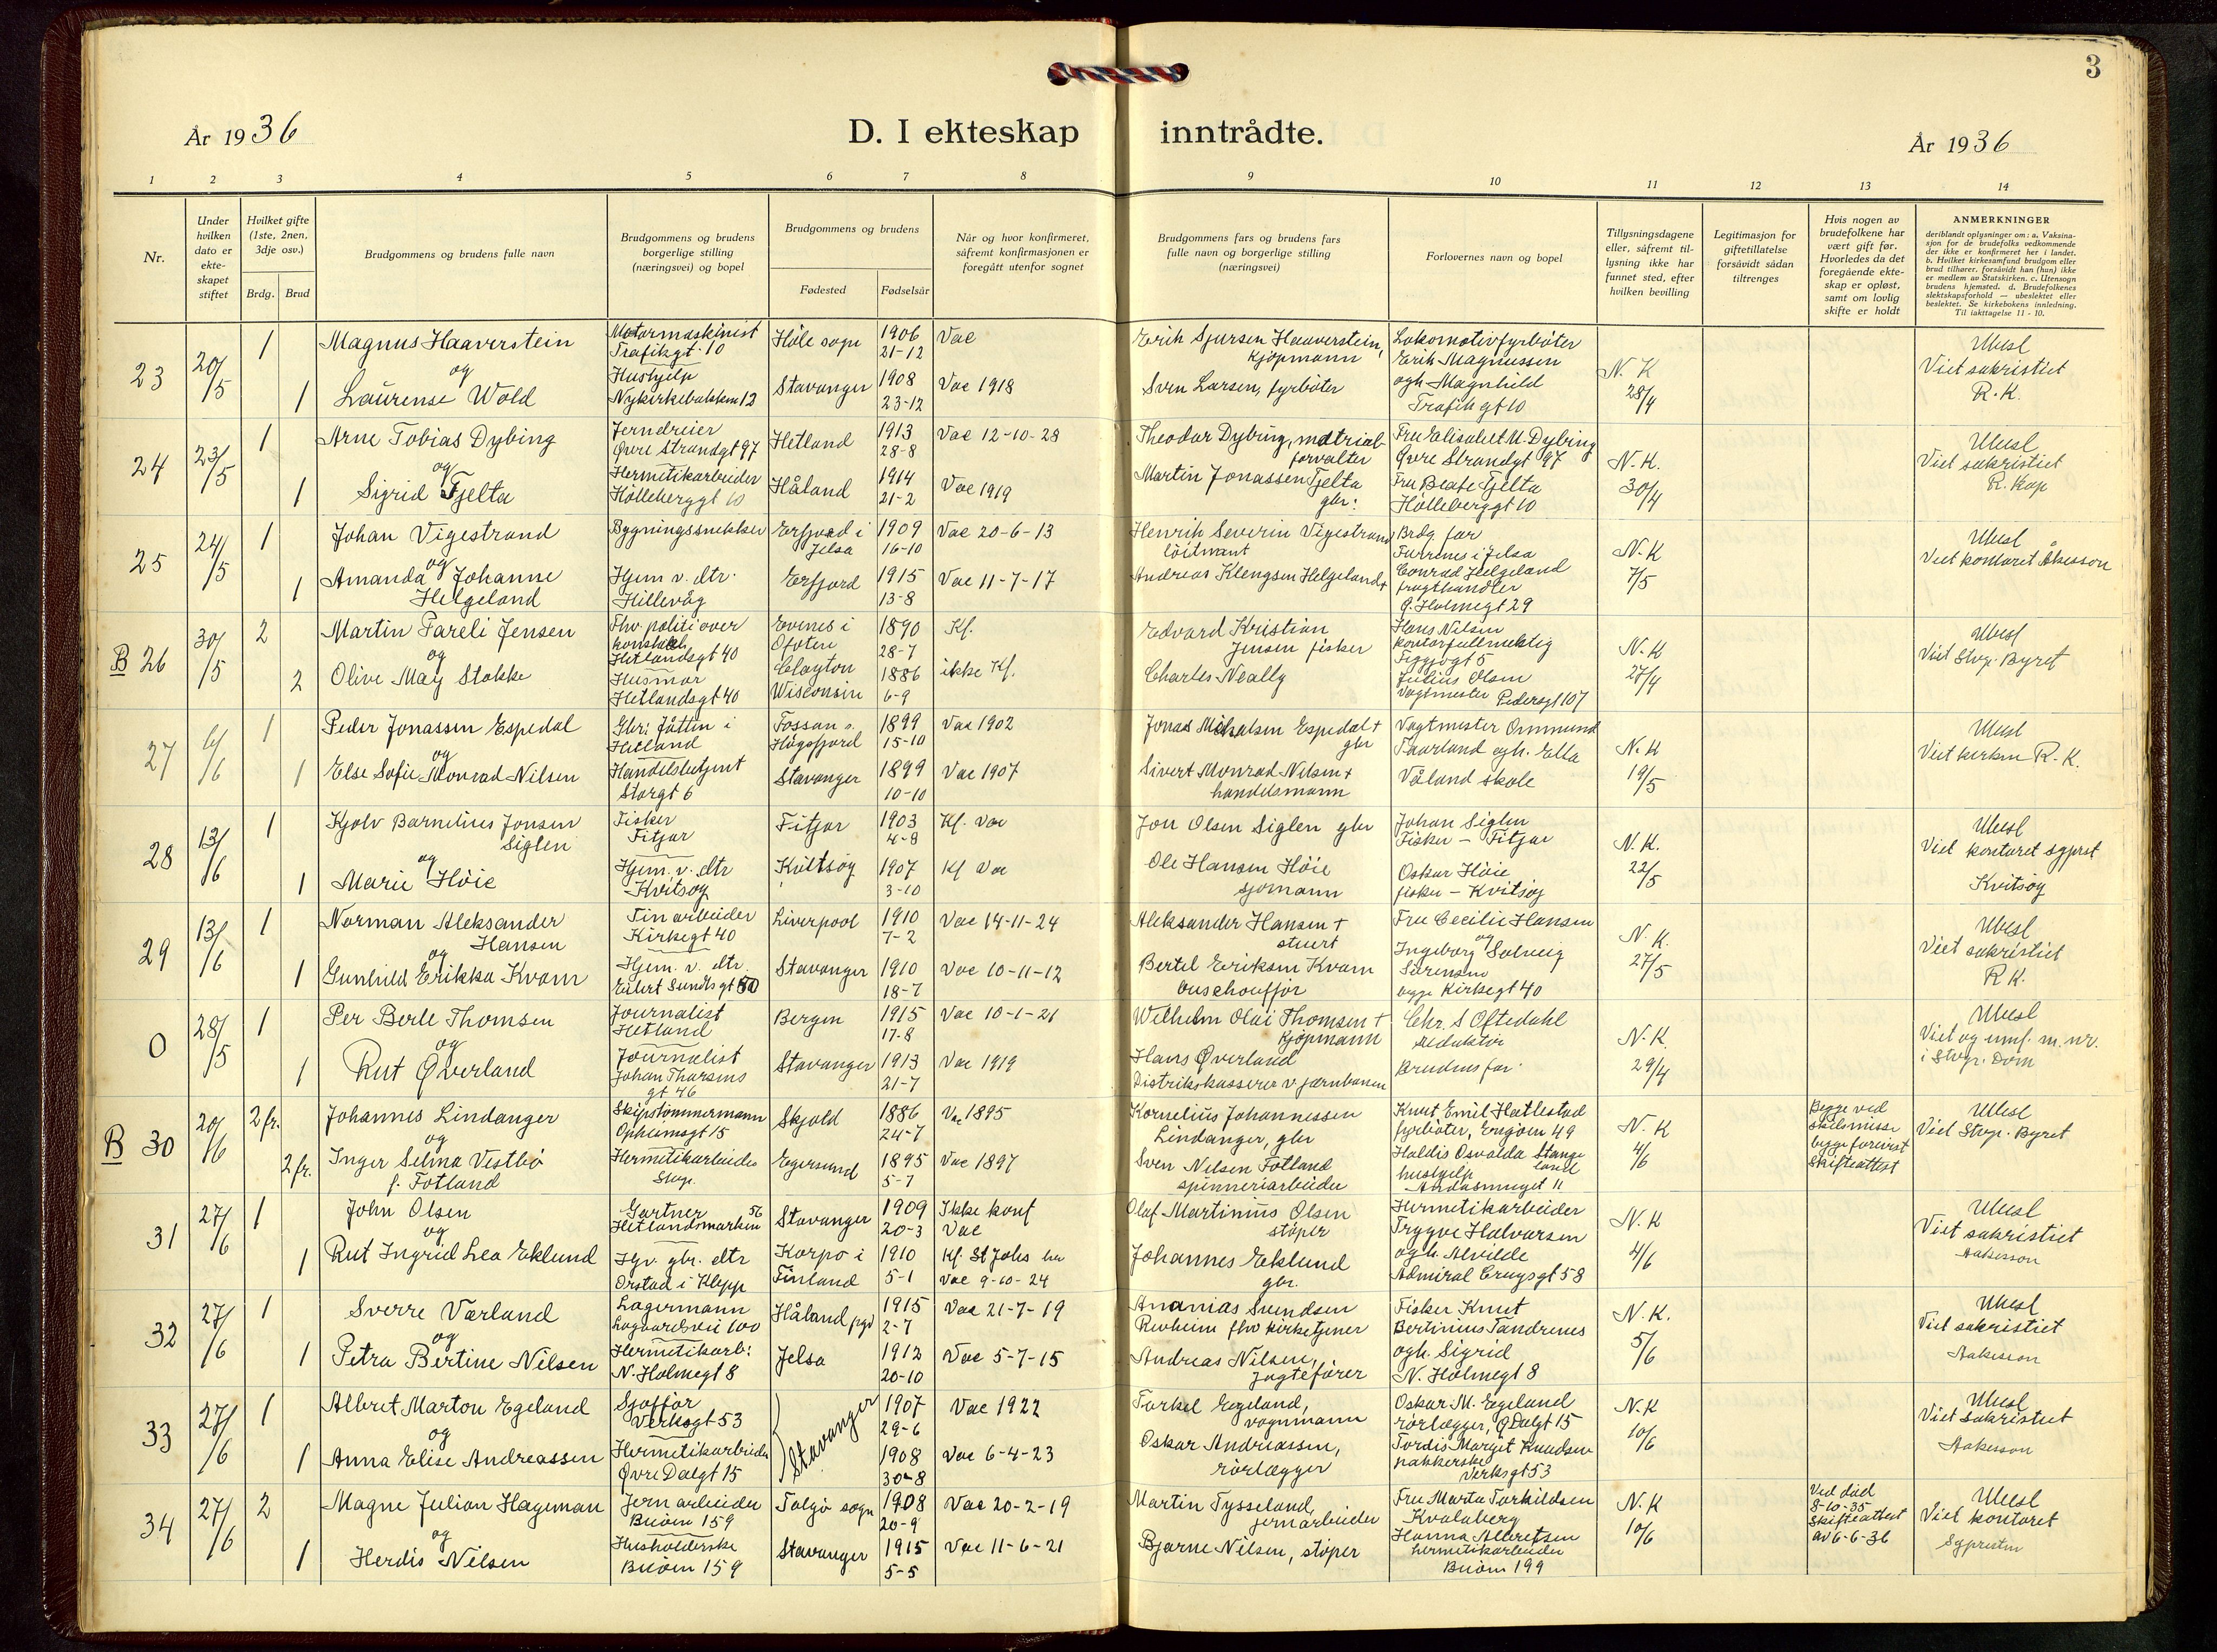 3
År 1936
D. I ekteskap inntrådte.
År 1936
1 2 3 4 5 6 7 8 9 10 11 12 13 14
Nr.
Under hvilken dato er ekteskapet stiftet
Hvilket gifte (1ste, 2nen, 3dje osv.)
Brdg. Brud
Brudgommens og brudens fulle navn
Brudgommens og brudens borgerlige stilling (næringsvei) og bopel
Brudgommens og brudens
Fødested Fødselsår
Når og hvor konfirmeret, såfremt konfirmasjonen er foregått utenfor sognet
Brudgommens fars og brudens fars fulle navn og borgerlige stilling (næringsvei)
Forlovernes navn og bopel
Tillysningsdagene eller, såfremt tillysning ikke har funnet sted, efter hvilken bevilling
Legitimasjon for giftetillatelse forsåvidt sådan tiltrenges
Hvis nogen av brudefolkene har vært gift før. Hvorledes da det foregående ekteskap er opløst, samt om lovlig skifte er holdt
ANMERKNINGER
deriblandt oplysninger om: a. Vaksinasjon for de brudefolks vedkommende der ikke er konfirmeret her i landet. b. Hvilket kirkesamfund brudgom eller brud tilhører, forsåvidt han (hun) ikke er medlem av Statskirken. c. Utensogn brudens hjemsted. d. Brudefolkenes slektskapsforhold — ubeslektet eller beslektet. Se kirkebokens innledning. Til iakttagelse 11 - 10.
23
20/5
1
Magnus Haaverstein
og
1
Laurense Wold
Motormaskinist
Trafikgt. 10
Hushjelp
Nykirkebakken 12
Høle sogn
Stavanger
1906
21-12
1908
23-12
Vac
Vac 1918
Erik Sjursen Haaverstein,
kjøpmann
Sven Larsen, fyrbøter
Lokomotivfyrbøter
Erik Magnussen
ogh. Magnhild
Trafikgt 10
N. K
28/4
Ubesl
Viet sakristiet
R. K.
24
23/5
1
Arne Tobias Dybing
og
1
Sigrid Tjelta
Jerndreier
Øvre Strandgt 97
Hermetikarbeider
Hølleberggt 10
Hetland
Håland
1913
28-8
1914
21-2
Vac 12-10-28
Vac 1919
Theodor Dybing, matrial-
forvalter
Martin Jonassen Tjelta
gbr:
Fru Elisabet M. Dybing
Øvre Strandgt 97
Fru Beate Tjelta
Hølleberggt 10
N. K.
30/4
Ubesl
Viet sakristiet
R. Kap
25
24/5
1
Johan Vigestrand
og
1
Amanda Johanne
Helgeland
Bygningssnekker
Hjem v. dtr.
Hillevåg
Erfjord i
Jelsa
Erfjord
1909
16-10
1915
13-8
Vac 20-6-13
Vac 11-7-17
Henrik Severin Vigestrand
løitnant
Andreas Klengsen Helgeland +
Brdg far
Furenes i Jelsa
Conrad Helgeland
frugthandler
G. Holmegt 29
N. K
7/5
Ubesl
Viet kontoret Åkesson
B 26
30/5
2
Martin Pareli Jensen
og
2
Olive May Stokke
Fhv. politiover
konstabel
Hetlandsgt 40
Husmor
Hetlandsgt 40
Evenes i
Ofoten
Clayton
Wisconsin
1890
28-7
1886
6-9
Kf.
ikke Kf.
Edvard Kristian
Jensen fisker
Charles Neally
Hans Nilsen
kontorfullmektig
Figgjogt 5
Julius Olsen
vagtmester Pedersgt 107
N. K
27/4
Ubesl
Viet Stvgr. Byret
27
6/6
1
Peder Jonassen Espedal
og
1
Else Sofie Monrad-Nilsen
Gbr: Jåtten i
Hetland
Handelsbetjent
Storgt 6
Fossan s.
Høgsfjord
Stavanger
1899
15-10
1899
10-10
Vac 1902
Vac 1907
Jonas Mikalsen Espedal +
gbr
Sivert Monrad Nilsen +
handelsmann
Vagtmester Ommund
Taarland ogh. Ella
Våland skole
N. K
19/5
Ubesl
Viet kirken R. K.
28
13/6
1
Kjølv Bernelius Jonsen
Siglen
og
1
Marie Høie
Fisker
Fitjar
Hjem. v. dtr
Kvitsøy
Fitjar
Kvitsøy
1903
4-8
1907
3-10
Kf. Vac
Kf Vac
Jon Olsen Siglen gbr
Ole Hansen Høie
sjømann
Johan Siglen
Fisker - Fitjar
Oskar Høie
fisker - Kvitsøy
N. K.
22/5
Ubesl
Viet kontoret sgprst
Kvitsøy
29
13/6
1
Norman Aleksander
Hansen
og
1
Gunhild Erikka Kvam
Tinarbeider
Kirkegt 40
Hjem. v. dtr
Eilert Sundsgt 50
Liverpool
Stavanger
1910
7-2
1910
18-7
Vac 14-11-24
Vac 10-11-12
Aleksander Hansen +
stuert
Bertel Eriksen Kvam
buschouffør
Fru Cecilie Hansen
og
Ingeborg Solveig
Sørensen
begge Kirkegt 40
N. K.
27/5
Ubesl
Viet sakristiet
R K.
0
28/5
1
Per Berle Thomsen
og
1
Rut Øverland
Journalist
Hetland
Journalist
Johan Thorsens
gt 46
Bergen
Stavanger
1915
17-8
1913
21-7
Vac 10-1-21
Vac 1919
Wilhelm Olai Thomsen +
kjøpmann
Hans Øverland
Distriktskasserer v jærnbanen
Chr. S Oftedahl
redaktør
Brudens far.
N. K.
29/4
Ubesl
Viet og innf. m. nr.
i Stvgr. Dom
B 30
20/6
2 fr.
Johannes Lindanger
og
2 fr.
Inger Selma Vestbø
f. Fotland
Skipstømmermann
Opheimsgt 15
Hermetikarbeider
Stvgr.
Skjold
Egersund
1886
24-7
1895
5-7
Vac 1895
Vac 1897
Kornelius Johannessen
Lindanger, gbr
Sven Nilsen Fotland
spinneriarbeider
Knut Emil Hatlestad
fyrbøter, Engøen 49
Haldis Osvalda Stange
land
hushjelp
N. K
4/6
Begge ved
skilsmisse
begge forevist
Skifteattest
Ubesl
Viet Stvgr. Byret
31
27/6
1
John Olsen
og
1
Rut Ingrid Lea Eklund
Gartner
Hetlandsmarken 56
Hgv. gbr. dtr
Orstad i Klepp
Stavanger
Korpo i
Finland
1909
20-3
1910
5-1
Ikke konf
Vac
Kf. St Johs
Vac 9-10-24
Olaf Martinius Olsen
støper
Johannes Eklund
gbr.
Hermetikarbeider
Trygve Halvorsen
ogh. Alvilde
Admiral Cruysgt 58
N. K
4/6
Ubesl
Viet sakristiet
Aakesson
32
27/6
1
Sverre Værland
og
1
Petra Bertine Nilsen
Lagermann
Lagaardsvei 100
Hermetikarb:
N. Holmegt 8
Håland pgd
Jelsa
1915
2-7
1912
20-10
Vac 21-7-19
Vac 5-7-15
Ananias Svendsen
Revheim fhv kirketjener
Andreas Nilsen,
Jagtefører
Fisker Knut
Bertinius Tandrenes
ogh. Sigrid
N. Holmegt 8
N. K.
5/6
Ubesl
Viet sakristiet
Aakesson
33
27/6
1
Albert Marton Egeland
og
1
Anna Elise Andreassen
Sjåffør
Verksgt 53
Hermetikarbeider
Øvre Dalgt 15
Stavanger
1907
29-6
1908
30-8
Vac 1922
Vac 6-4-23
Torkel Egeland,
vognmann
Oskar Andreassen,
rørlægger
Oskar M. Egeland
rørlægger, Ø Dalgt 15
Tordis Margit Knudsen
pakkerske
Verksgt 53
N. K
10/6
Ubesl
Viet sakristiet
Aakesson
34
27/6
2
Magne Julian Hageman
og
1
Herdis Nilsen
Jernarbeider
Buøen 159
Husholderske
Buøen 159
Talgø sogn
Stavanger
1908
20-9
1915
5-5
Vac 20-2-19
Vac 11-6-21
Martin Tysseland,
jernarbeider
Bjarne Nilsen, støper
Fru Marta Torkildsen
Kvaleberg
Hanna Albretsen
hermetikarbeider
Buøen 199
N. K
10/6
Ved død
8-10-35
Skifteattest
av 6-6-36
Ubesl
Viet kontoret
Sgpresten